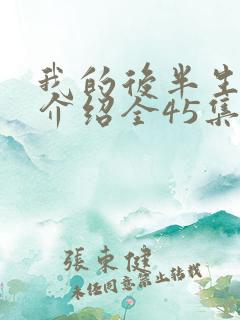 我的後半生
介绍全45集
張東健
未经同意禁止转载